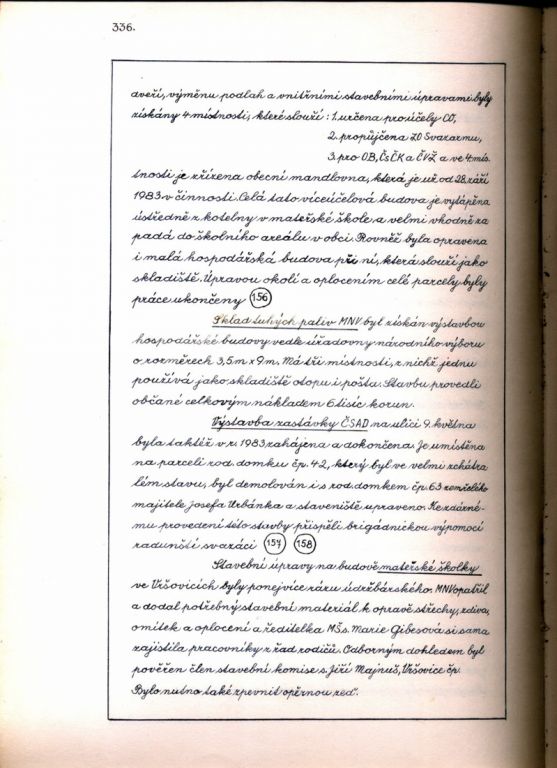 336.
dveří, výměnu podlah a vnitřními stavebními úpravami byly
získány 4 místnosti, které slouží: 1. určena pro účely CO,
2. propůjčena ZO Svazarmu,
3. pro OB, ČsČK a ČVŽ a ve 4. mís
tnosti je zřízena obecní mandlovna, která je už od 28. září
1983 v činnosti. Celá tato víceúčelová budova je vytápěna
ústředně z kotelny v mateřské škole a velmi vhodně za
padá do školního areálu v obci. Rovněž byla opravena
i malá hospodářská budova při ní, která slouží jako
skladiště. Úpravou okolí a oplocením celé parcely byly
práce ukončeny 156
Sklad tuhých paliv MNV byl získán výstavbou
hospodářské budovy vedle úřadovny národního výboru
o rozměrech 3,5 m x 9 m. Má tři místnosti, z nichž jednu
používá jako skladiště otopu i pošta. Stavbu provedli
občané celkovým nákladem 6 tisíc korun.
Výstavba zastávky ČSAD na ulici 9. května
byla taktéž v r. 1983 zahájena a dokončena. Je umístěna
na parcele rod. domku čp. 42, který byl ve velmi zchátra
lém stavu, byl demolován i s rod. domkem čp. 63 zemřelého
majitele Josefa Urbánka a staveniště upraveno. Ke zdárné-
mu provedení této stavby přispěli brigádnickou výpomocí
radunští svazáci 157 158
Stavební úpravy na budově mateřské školky
ve Vršovicích byly ponejvíce rázu údržbářského. MNV opatřil
a dodal potřebný stavební materiál k opravě střechy, zdiva,
omítek a oplocení a ředitelka MŠ s. Marie Gibesová si sama
zajistila pracovníky z řad rodičů. Odborným dohledem byl
pověřen člen stavební komise s. Jiří Majnuš, Vršovice čp.
Bylo nutno také zpevnit opěrnou zeď.